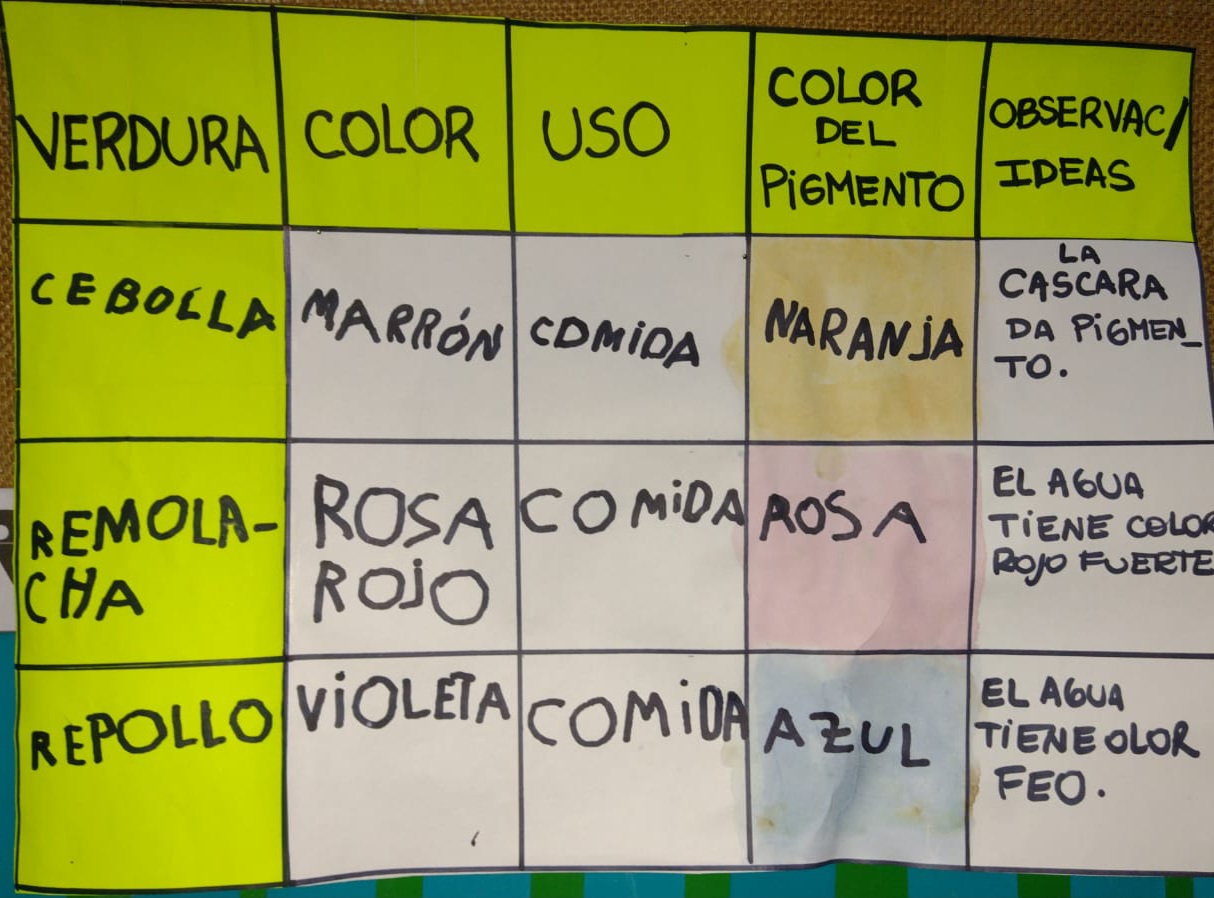 VERDURA
COLOR
USO
COLOR
DEL
PiGMENTO
OBSERVAC/
IDEAS
CEBOLLA
MARRÓN
COMiDA
NARANjA
LA
CASCARA
DA PiGMEN_
TO.
REMOLA-
CHA
ROSA
ROjO
COMiDA
ROSA
EL AGUA
TIENE COLOR
ROJO FUERTE
REPOLLO
ViOLETA
COMiDA
AZUL
EL AGUA
TIENE OLOR
FEO.